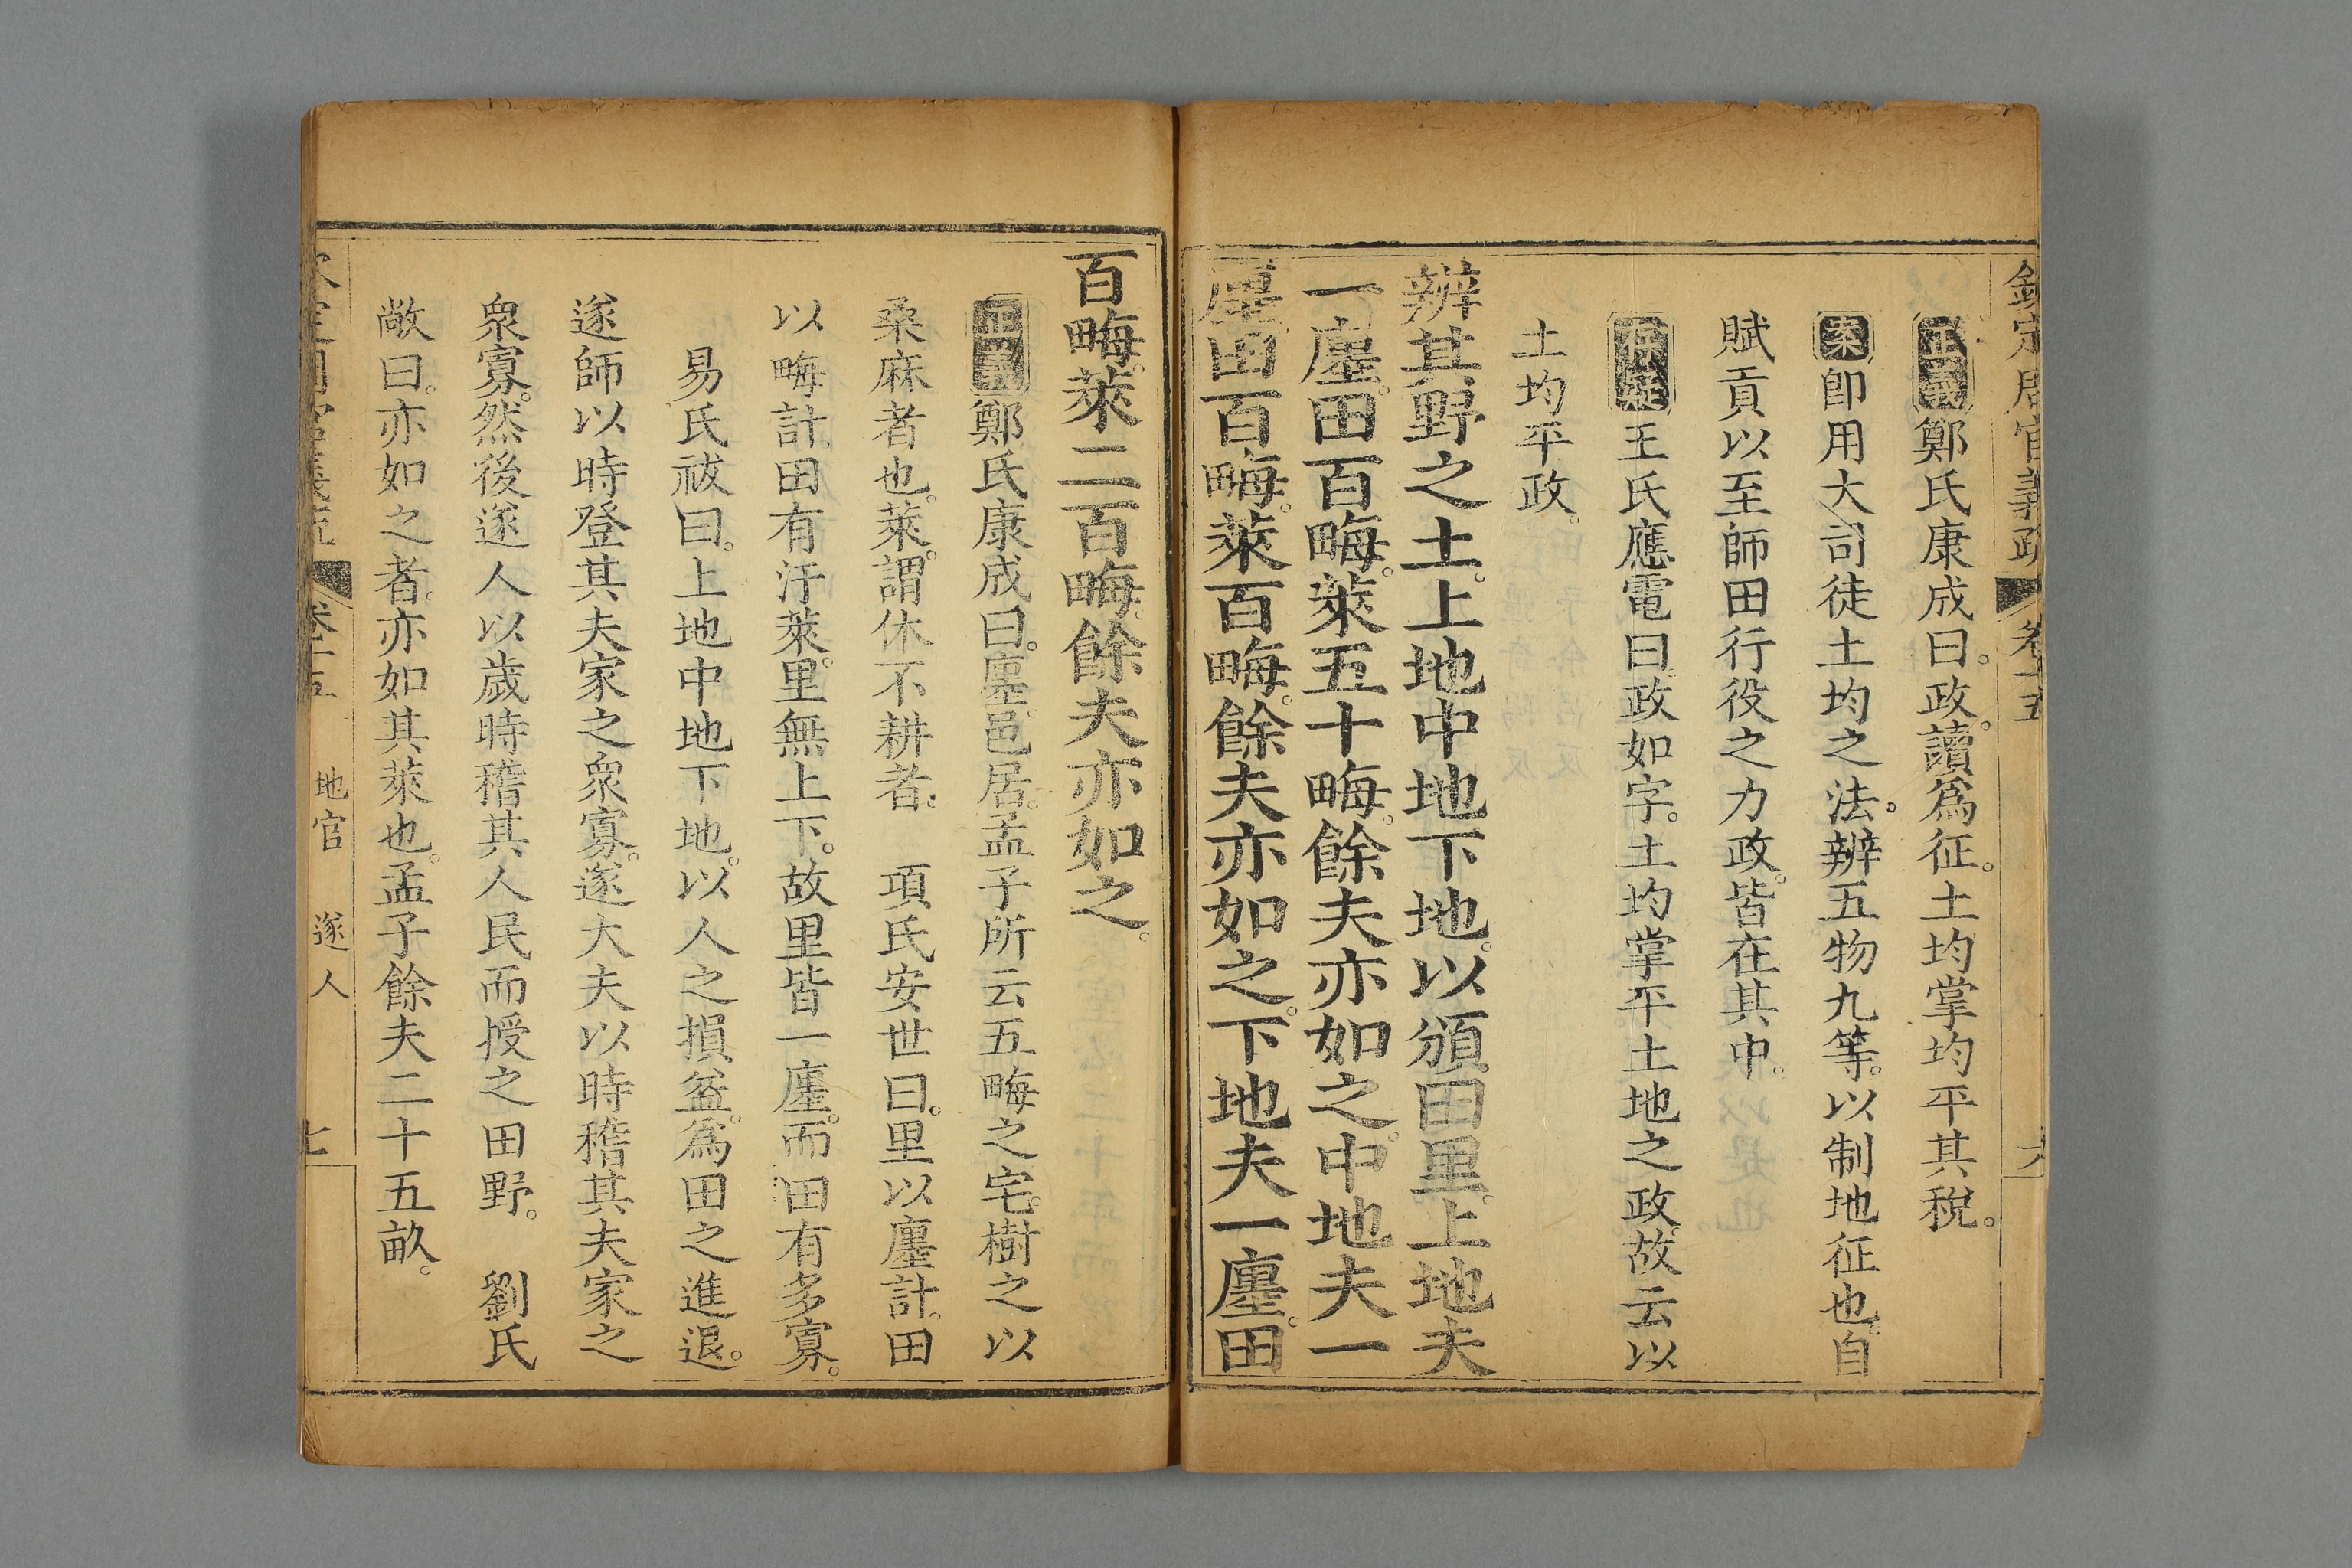 欽定周官義疏 卷十五 六
正義鄭氏康成曰。政。讀爲征。土均掌均平其稅。
案卽用大司徒土均之法。辨五物九等。以制地征也。自
賦貢以至師田行役之力政。皆在其中。
存疑王氏應電曰。政如字。土均掌平土地之政。故云以
土均平政。
辨其野之土。上地中地下地。以頒田里。上地夫
一廛。田百畮。萊五十畮。餘夫亦如之。中地夫一
廛。田百畮。萊百畮。餘夫亦如之。下地夫一廛。田
百畮。萊二百畮。餘夫亦如之。
正義鄭氏康成曰。廛。邑居。孟子所云五畮之宅。樹之以
桑麻者也。萊。謂休不耕者。 項氏安世曰。里以廛計。田
以畮計。田有汙萊。里無上下。故里皆一廛。而田有多寡。
易氏祓曰。上地中地下地。以人之損益。爲田之進退。
遂師以時登其夫家之衆寡。遂大夫以時稽其夫家之
衆寡。然後遂人以歲時稽其人民而授之田野。 劉氏
敞曰。亦如之者。亦如其萊也。孟子餘夫二十五畝。
卷十五 地官 遂人 七